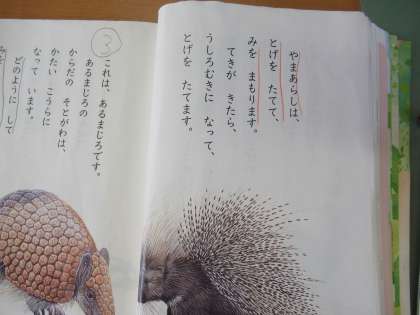 やまあらしは、
とげを たてて、
みを まもります。
てきが きたら、
うしろむきに なって、
とげを たてます。
③
これは、あるまじろです。
あるまじろの
からだの そとがわは、
かたい こうらに
なって います。
どのように して
みを